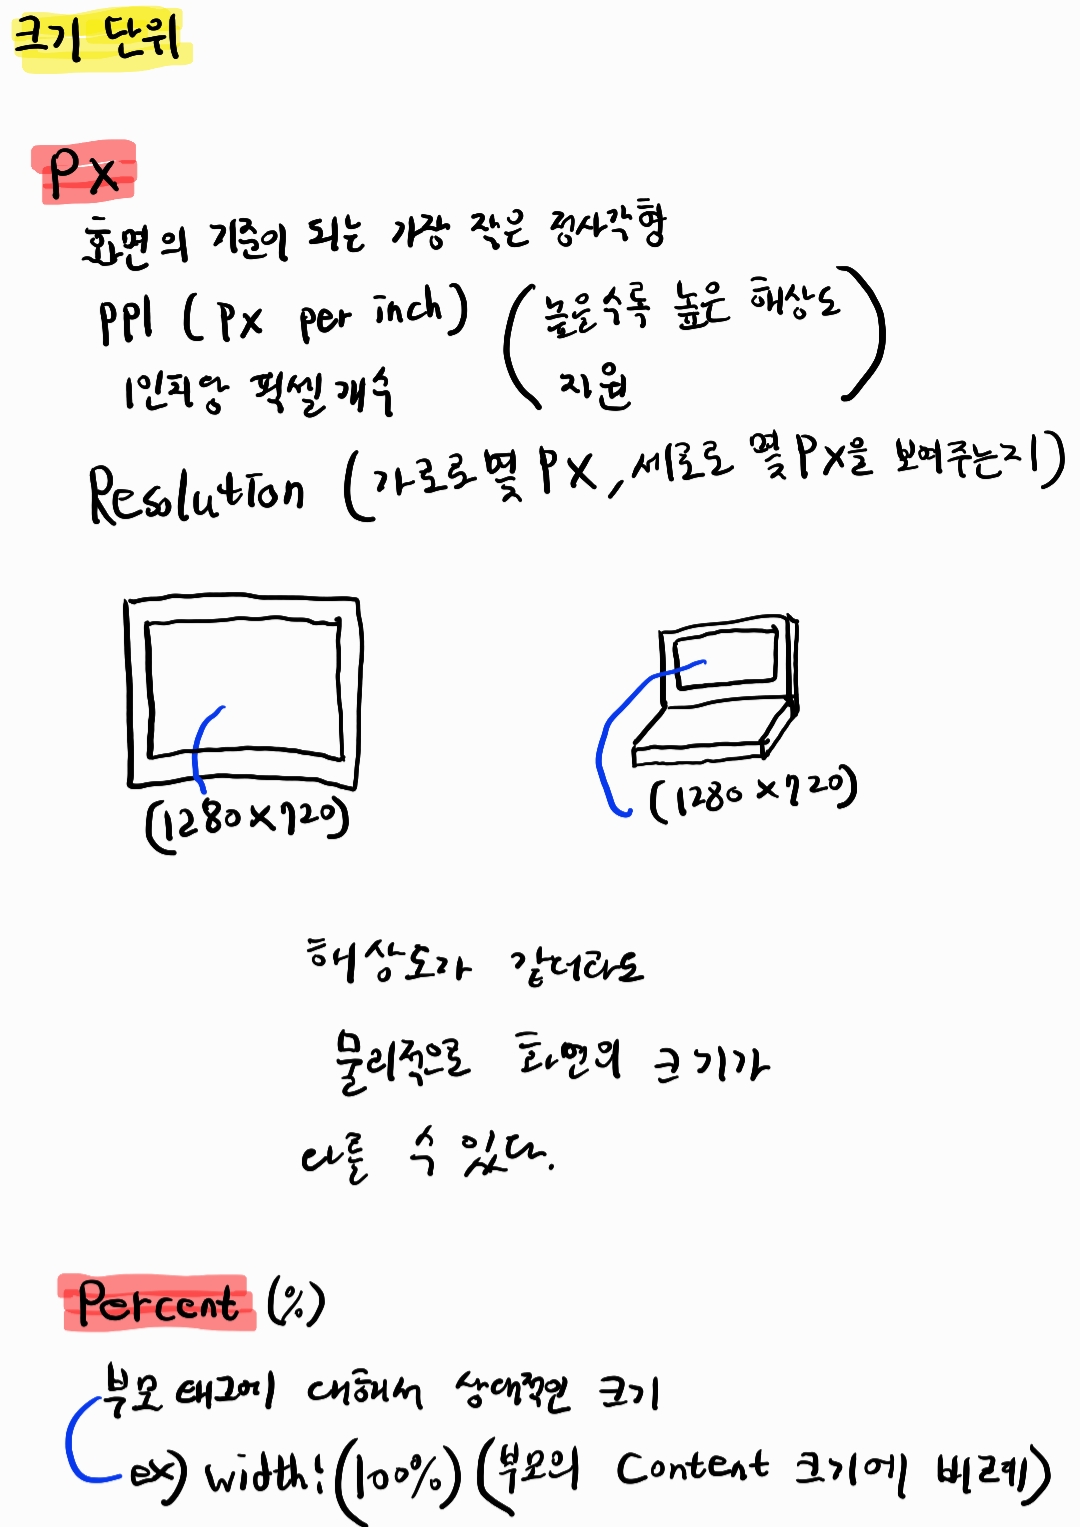 크기 단위
Px
화면의 기준이 되는 가장 작은 정사각형
PPI (Px per inch) (높을수록 높은 해상도
지원)
1인치당 픽셀 개수
Resolution (가로로 몇 PX, 세로로 몇 PX을 보여주는지)
(1280×720)
(1280×720)
해상도가 같더라도
물리적으로 화면의 크기가
다를 수 있다.
Percent (%)
부모 태그에 대해서 상대적인 크기
ex) width: (100%) (부모의 Content 크기에 비례)